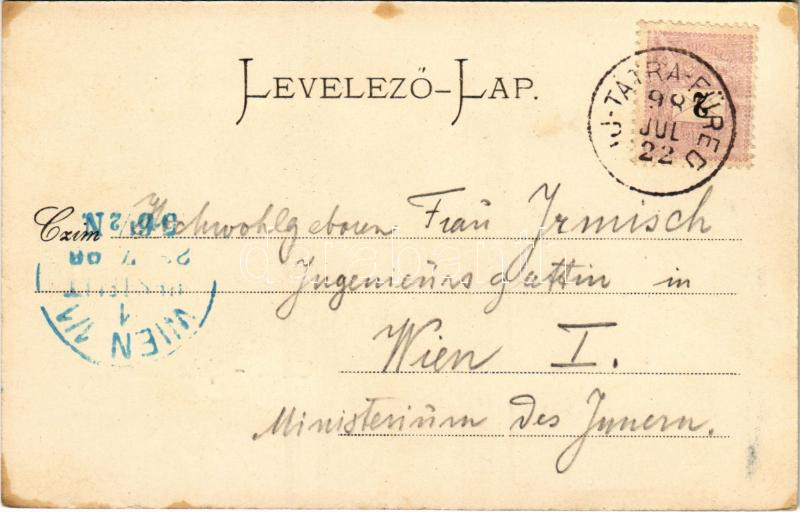 LEVELEZŐ-LAP.
2
ÚJ-TÁTRA-FÜRED
98
JUL
22
Czim
Hochwohlgeboren Frau Irmisch
Ingenieurs Gattin in
Wien I.
Ministerium des Innern.
WIEN 1/1
1
darabanth